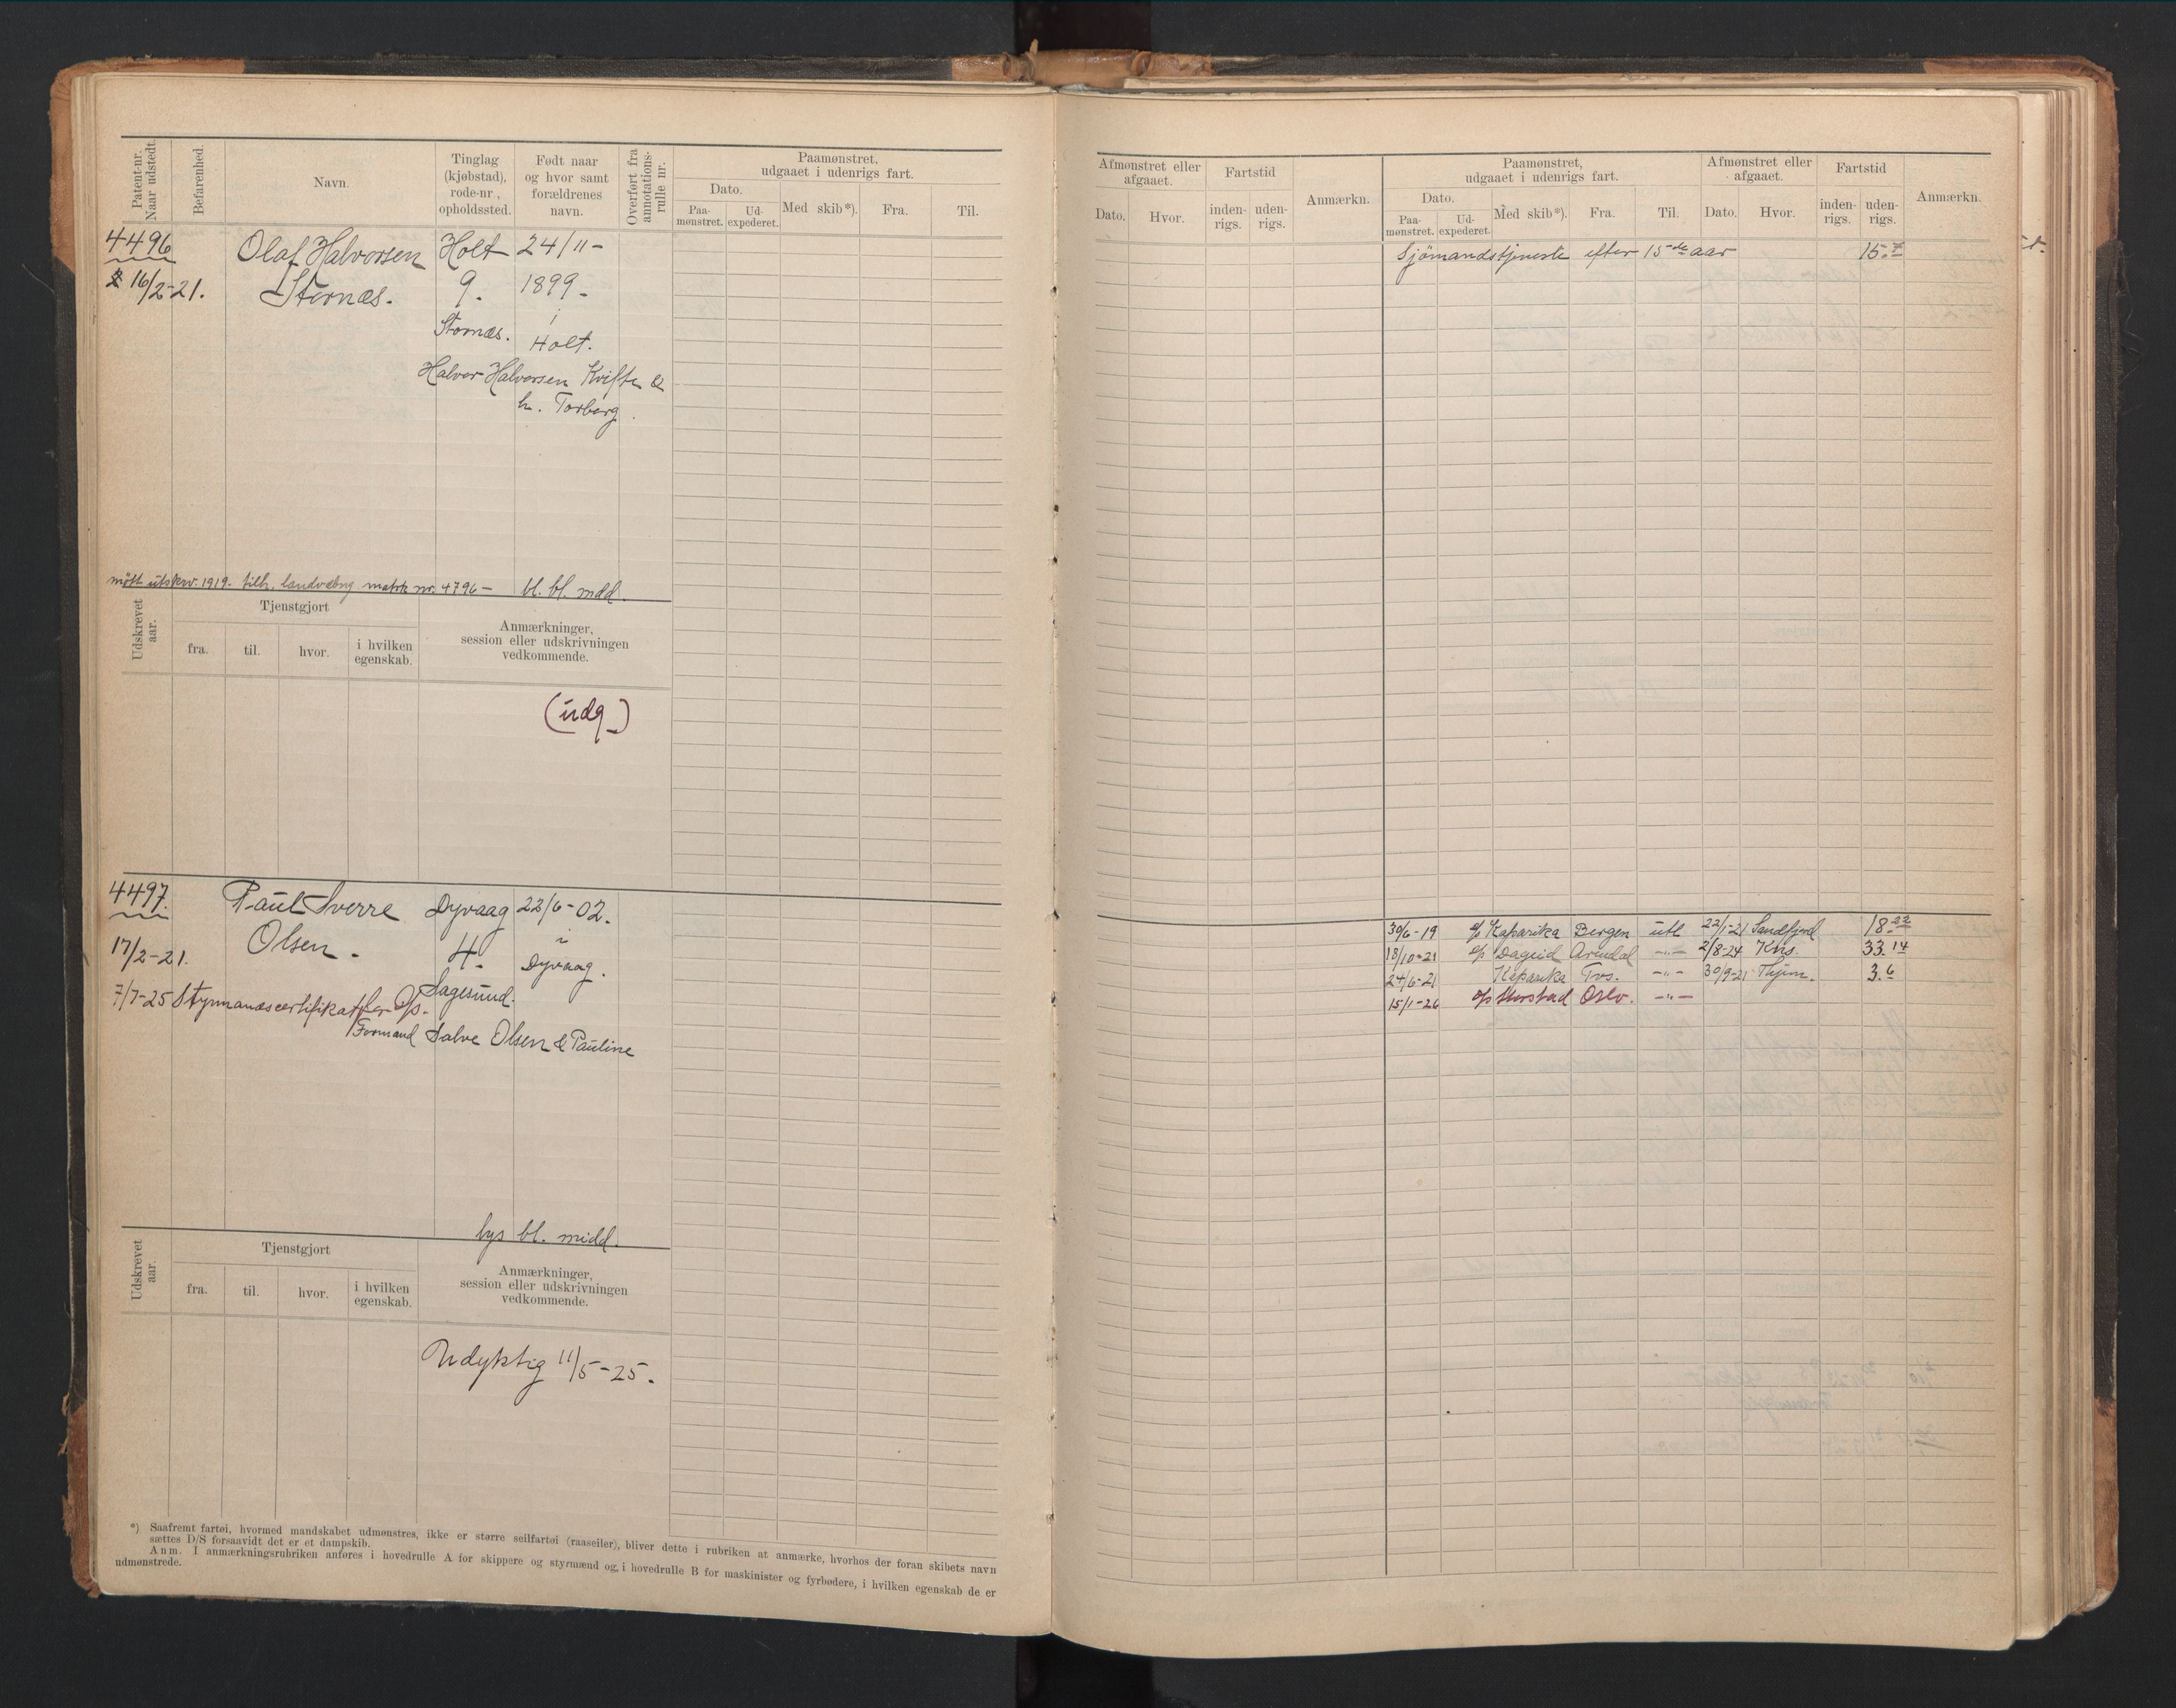 Patent-nr. Naar udstedt.
Befarenhed.
Navn.
Tinglag (kjøbstad), rode-nr., opholdssted.
Født naar og hvor samt forældrenes navn.
Overført fra annotations-rulle nr.
Paamønstret, udgaaet i udenrigs fart.
Dato.
Paa-mønstret.
Ud-expederet.
Med skib*).
Fra.
Til.
4496
Olaf Halvorsen Holt 24/11-
16/2-21. Stornæs. 9. 1899-
Stornæs. i
Holt.
Halvor Halvorsen Kvifte &
h. Torberg.
mött utskrv. 1919- tilh. landvæbng matrk nr. 4796- bl. bl. mdd.
Udskrevet aar.
Tjenstgjort
fra. til. hvor. i hvilken egenskab.
Anmærkninger, session eller udskrivningen vedkommende.
(udg)
4497. Paul Sverre Dyvaag 22/6-02.
17/2-21. Olsen. 4. i
Dyvaag.
Sagesund.
7/7-25 Styrmandscertifikat for
Formand Salve Olsen & Pauline
lys bl. midd.
Udskrevet aar.
Tjenstgjort
fra. til. hvor. i hvilken egenskab.
Anmærkninger, session eller udskrivningen vedkommende.
Udyktig 11/5-25.
*) Saafremt fartøi, hvormed mandskabet udmønstres, ikke er større seilfartøi (raaseiler), bliver dette i rubriken at anmærke, hvorhos der foran skibets navn
sættes D/S forsaavidt det er et dampskib.
Anm. I anmærkningsrubriken anføres i hovedrulle A for skippere og styrmænd og, i hovedrulle B for maskinister og fyrbødere, i hvilken egenskab de er
udmønstrede.
Afmønstret eller afgaaet.
Dato. Hvor.
Fartstid
inden-rigs. uden-rigs.
Anmærkn.
Paamønstret, udgaaet i udenrigs fart.
Dato.
Paa-mønstret. Ud-expederet.
Med skib*). Fra. Til.
Afmønstret eller afgaaet.
Dato. Hvor.
Fartstid
inden-rigs. uden-rigs.
Anmærkn.
Sjömandstjeneste efter 15de aar 15.
30/6-19 Kaparika Bergen utl 22/1-21 Sandfjord 18.22
18/10-21 Dageid Arendal -"- 2/8-24 Krs. 33.14
24/6-21 Kaparika Tvs. -"- 30/9-21 3.6
15/1-26 Oslo. -"-